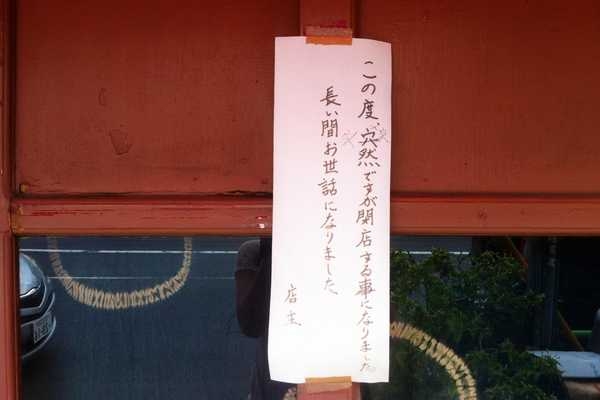 この度、穴然ですが閉店する事になりました。
長い間お世話になりました、
店主